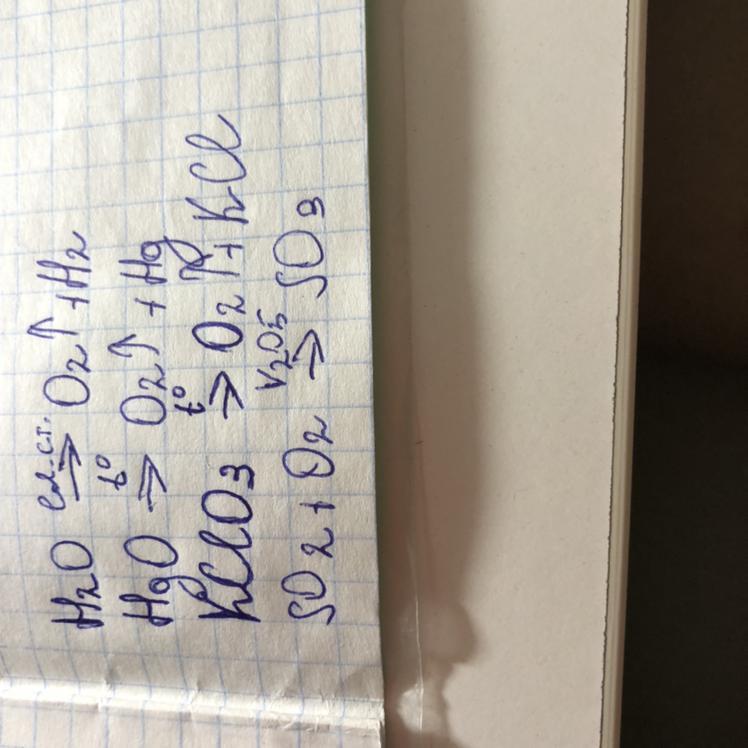 H2O эл.ст.→ O2↑ + H2
HgO t°→ O2↑ + Hg
KClO3 t°→ O2↑ + KCl
SO2 + O2 V2O5→ SO3